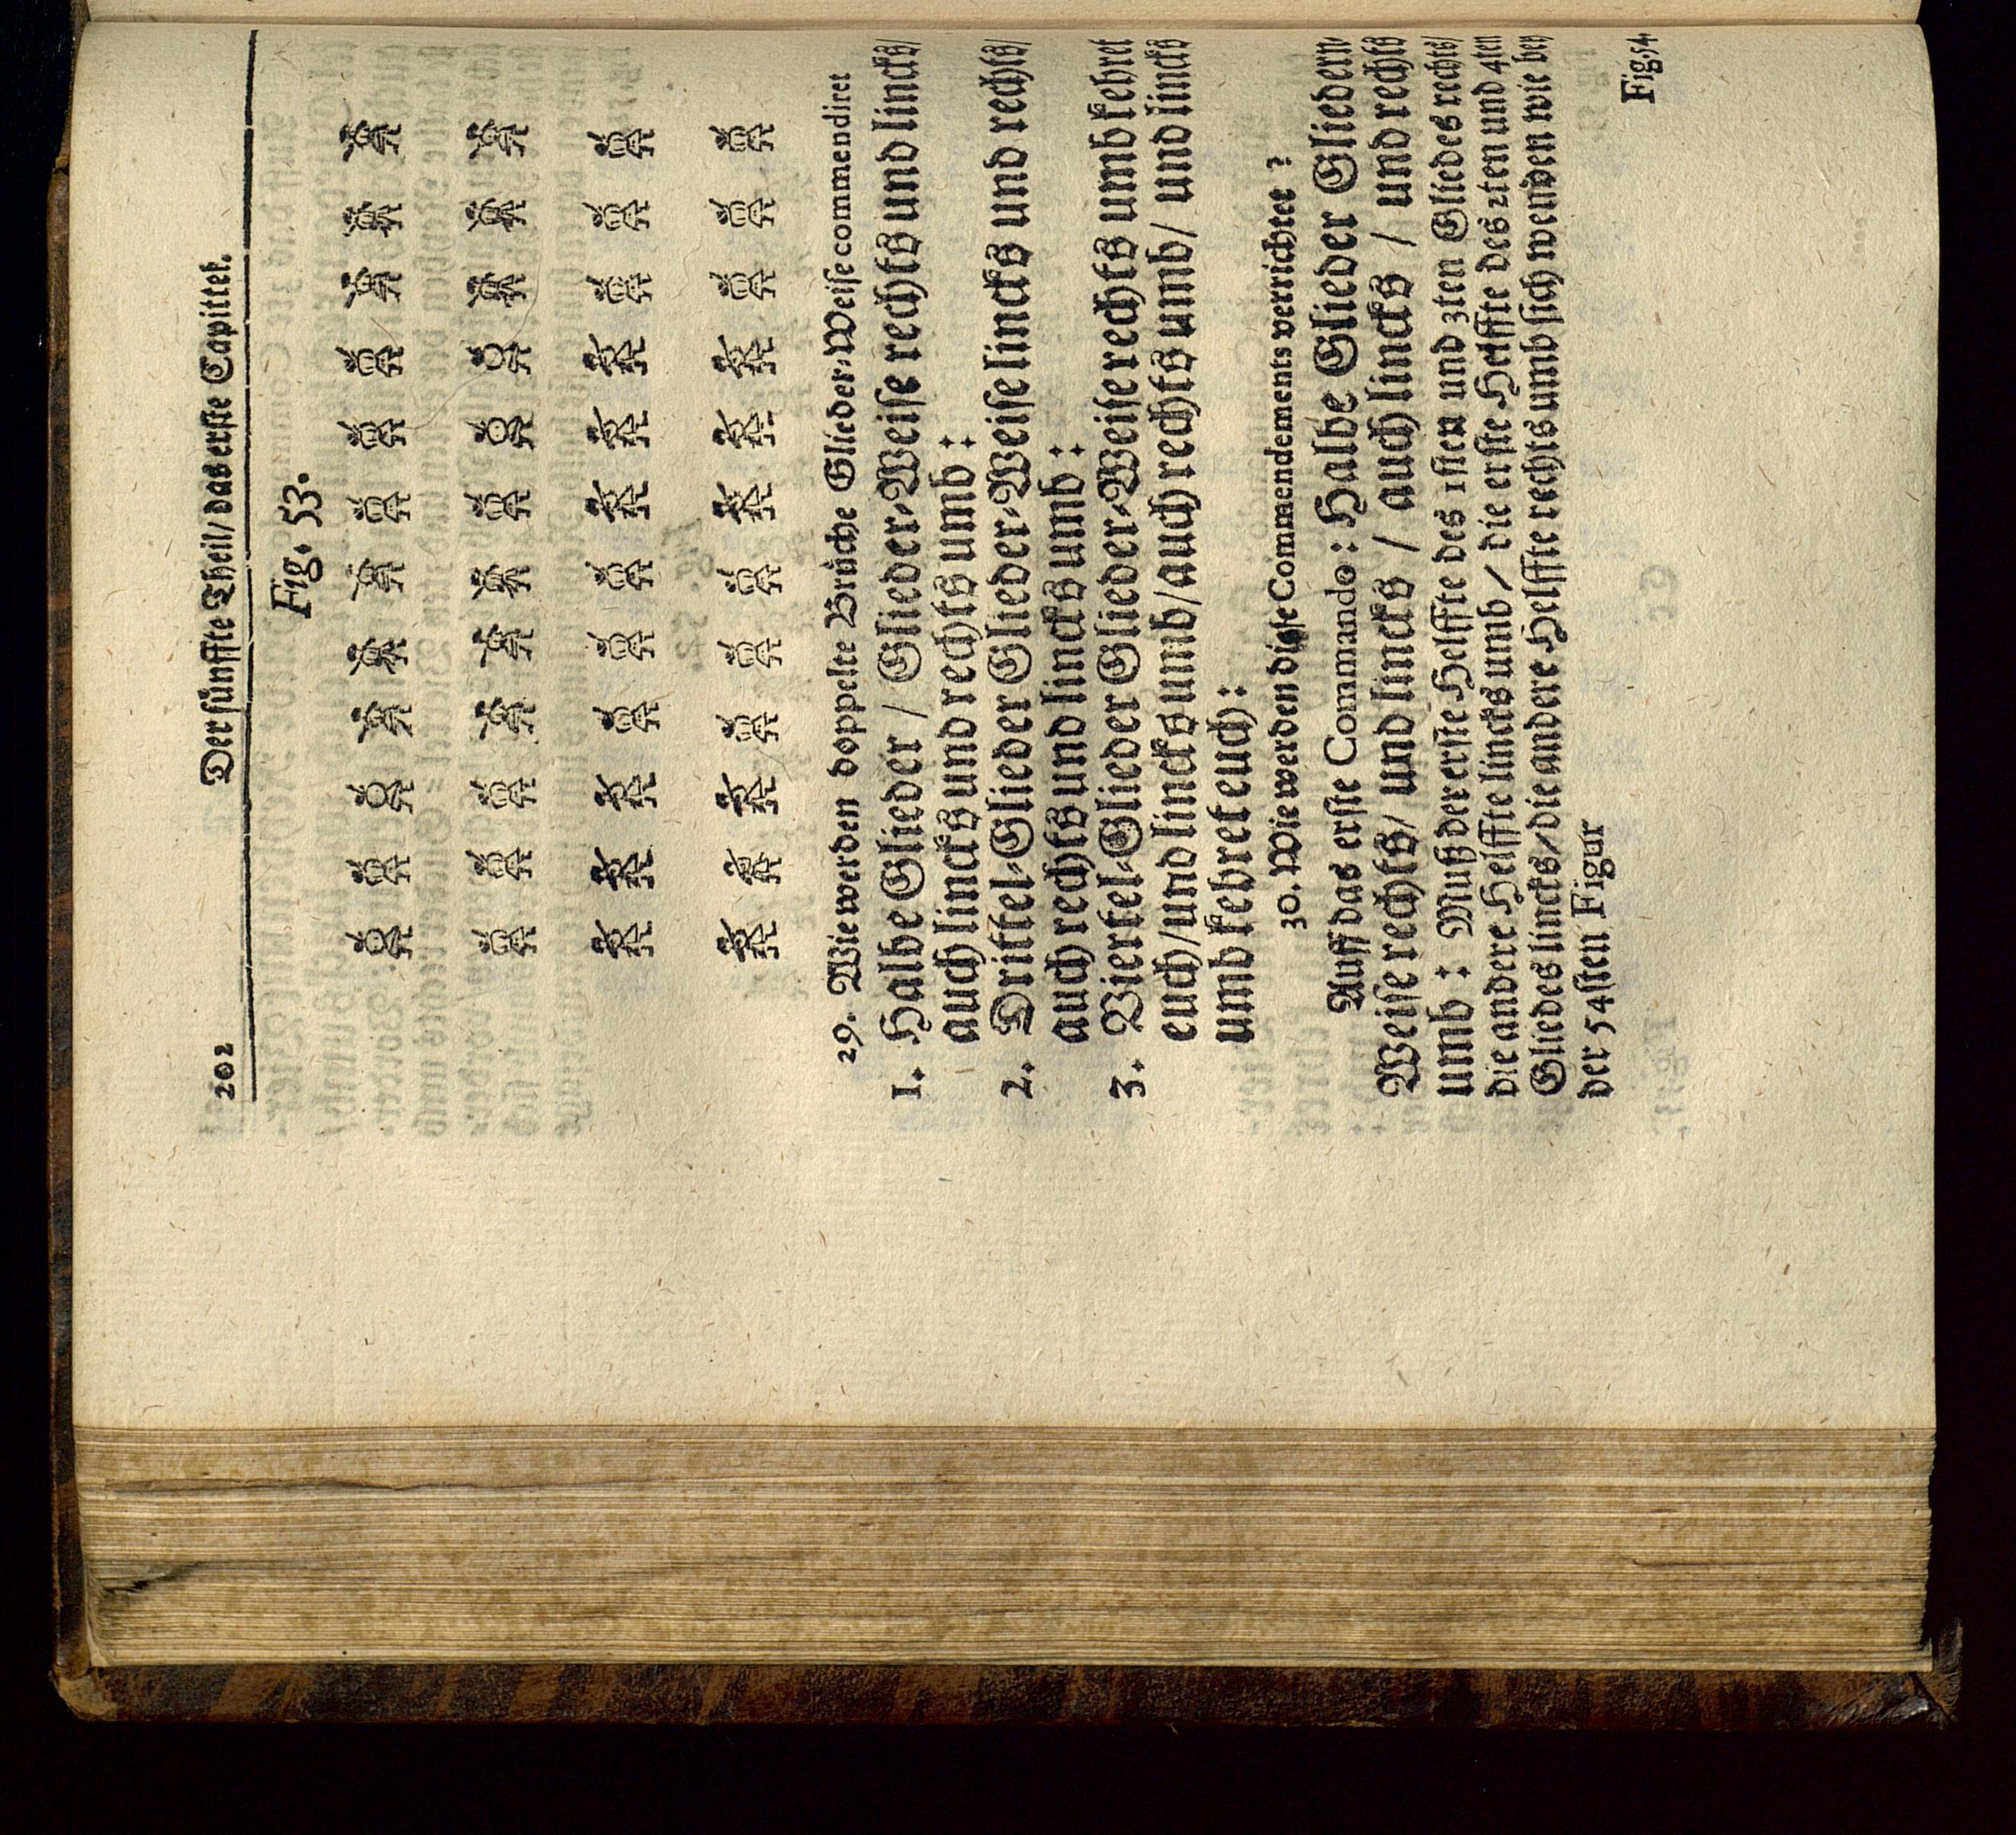 202 Der fünffte Theil/ das erste Capittel.
Fig. 53.
29. Wie werden doppelte Brüche Glieder-Weise commendiret
1. Halbe Glieder / Glieder-Weise rechts und lincks/
auch lincks und rechts umb:
2. Drittel-Glieder Glieder-Weise lincks und rechts/
auch rechts und lincks umb:
3. Viertel-Glieder Glieder-Weise rechts umb kehret
euch/und lincks umb/auch rechts umb/ und lincks
umb kehret euch:
30. Wie werden diese Commendements verrichtet ?
Auff das erste Commando: Halbe Glieder Gliedern-
Weise rechts/ und lincks / auch lincks / und rechts
umb: Muß der erste Helffte des 1sten und 3ten Gliedes rechts/
die andere Helffte lincks umb / die erste Helffte des 2ten und 4ten
Gliedes lincks/die andere Helffte rechts umb sich wenden wie bey
der 54sten Figur
Fig. 54.